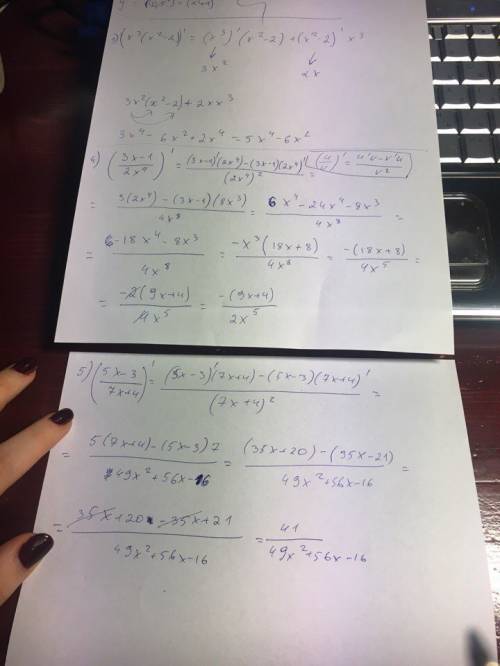 (x³(x²-2))' = (x³)'(x²-2) + (x²-2)' x³
↓ ↓
3x² 2x
3x²(x²-2) + 2x x³
3x⁴ - 6x² + 2x⁴ = 5x⁴ - 6x²
4) ((3x-1)/(2x⁴))' = ((3x-1)'(2x⁴) - (3x-1)(2x⁴)')/(2x⁴)² = (u/v)' = (u'v - v'u)/v²
= (3(2x⁴) - (3x-1)(8x³))/4x⁸ = (6x⁴ - 24x⁴ - 8x³)/4x⁸ =
= (-18x⁴ - 8x³)/4x⁸ = (-x³(18x+8))/4x⁸ = (-(18x+8))/4x⁵ =
= (-2(9x+4))/4x⁵ = (-(9x+4))/2x⁵
5) ((5x-3)/(7x+4))' = ((5x-3)'(7x+4) - (5x-3)(7x+4)')/(7x+4)² =
= (5(7x+4) - (5x-3)7)/(49x²+56x-16) = ((35x+20) - (35x-21))/(49x²+56x-16) =
= (35x+20 - 35x+21)/(49x²+56x-16) = 41/(49x²+56x-16)